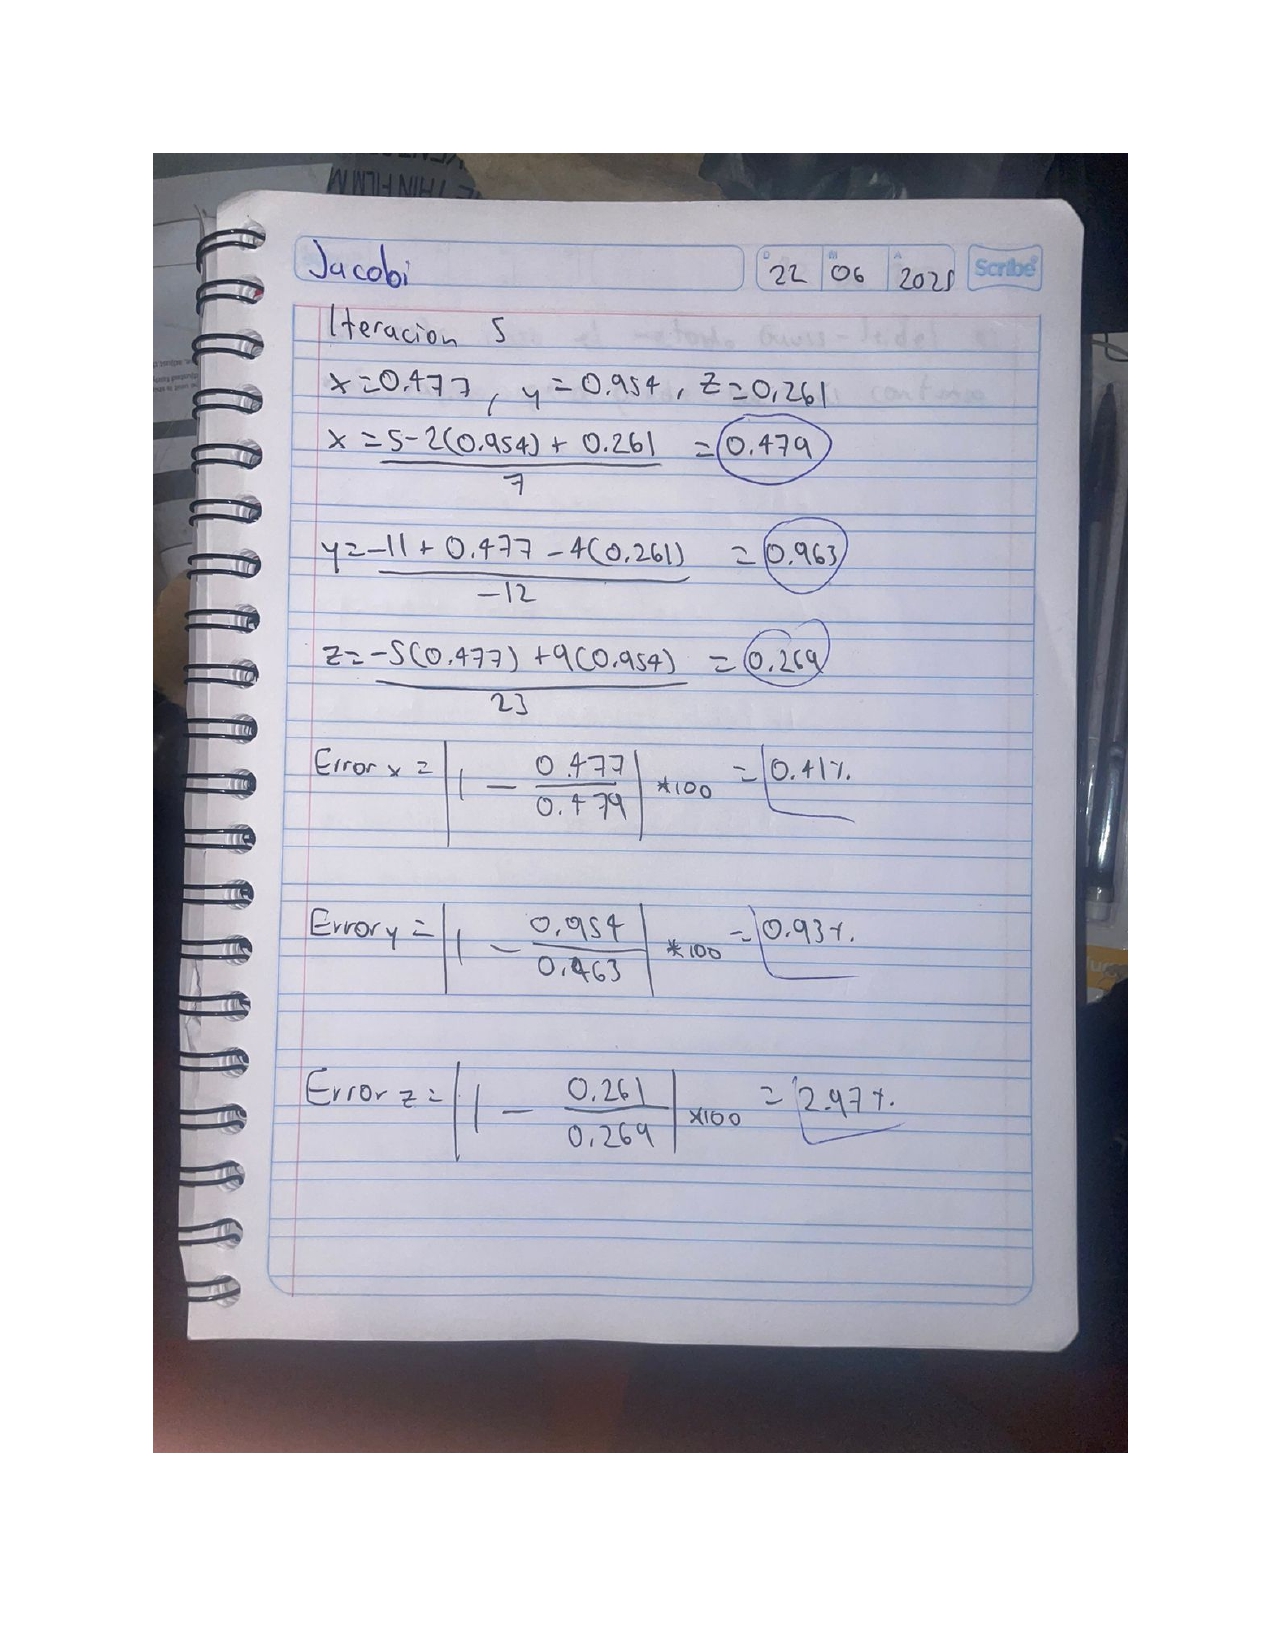 THIN FILM
Jacobi 22 06 2021 Scribe
Iteracion 5
x=0.477, y=0.954, z=0.261
x = 5-2(0.954) + 0.261 = 0.479
7
y=-11 + 0.477 - 4(0.261) = 0.963
-12
z=-5(0.477) +9(0.954) = 0.269
23
Error x = |1 - 0.477/0.479| *100 = 0.41%
Error y = |1 - 0.954/0.963| *100 = 0.93%
Error z = |1 - 0.261/0.269| *100 = 2.97%